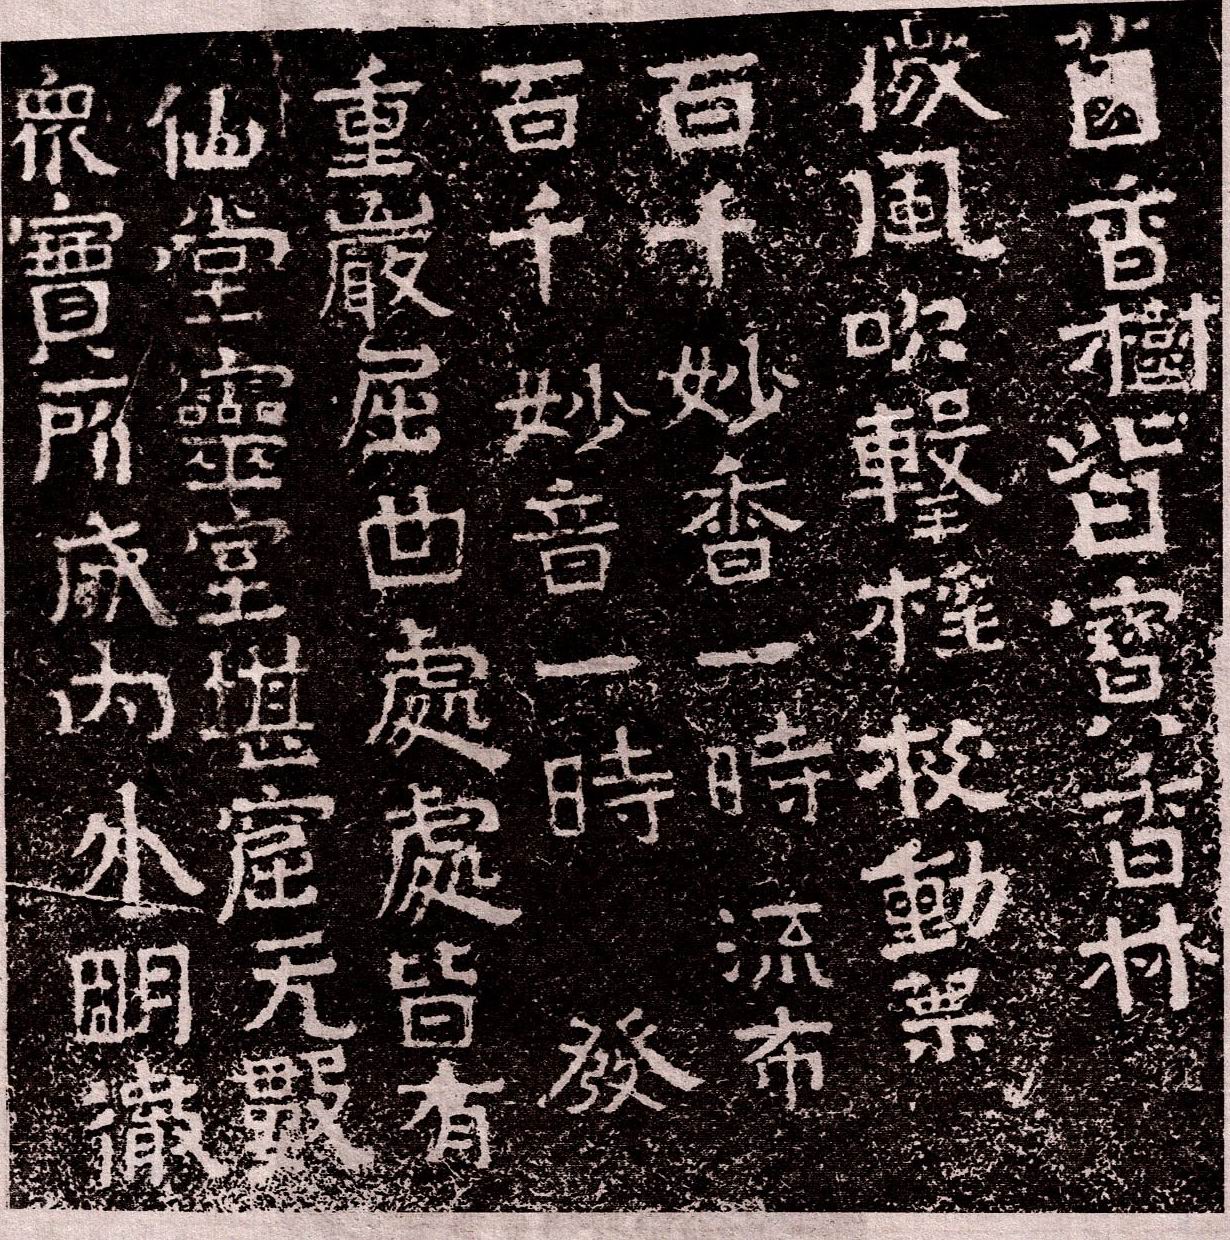 香樹皆寶香林
微風吹擊榣枝動葉
百千妙香一時流布
百千妙音一時發
重巖屈曲處處皆有
仙堂靈室堪窟无數
眾寶所成內外明徹